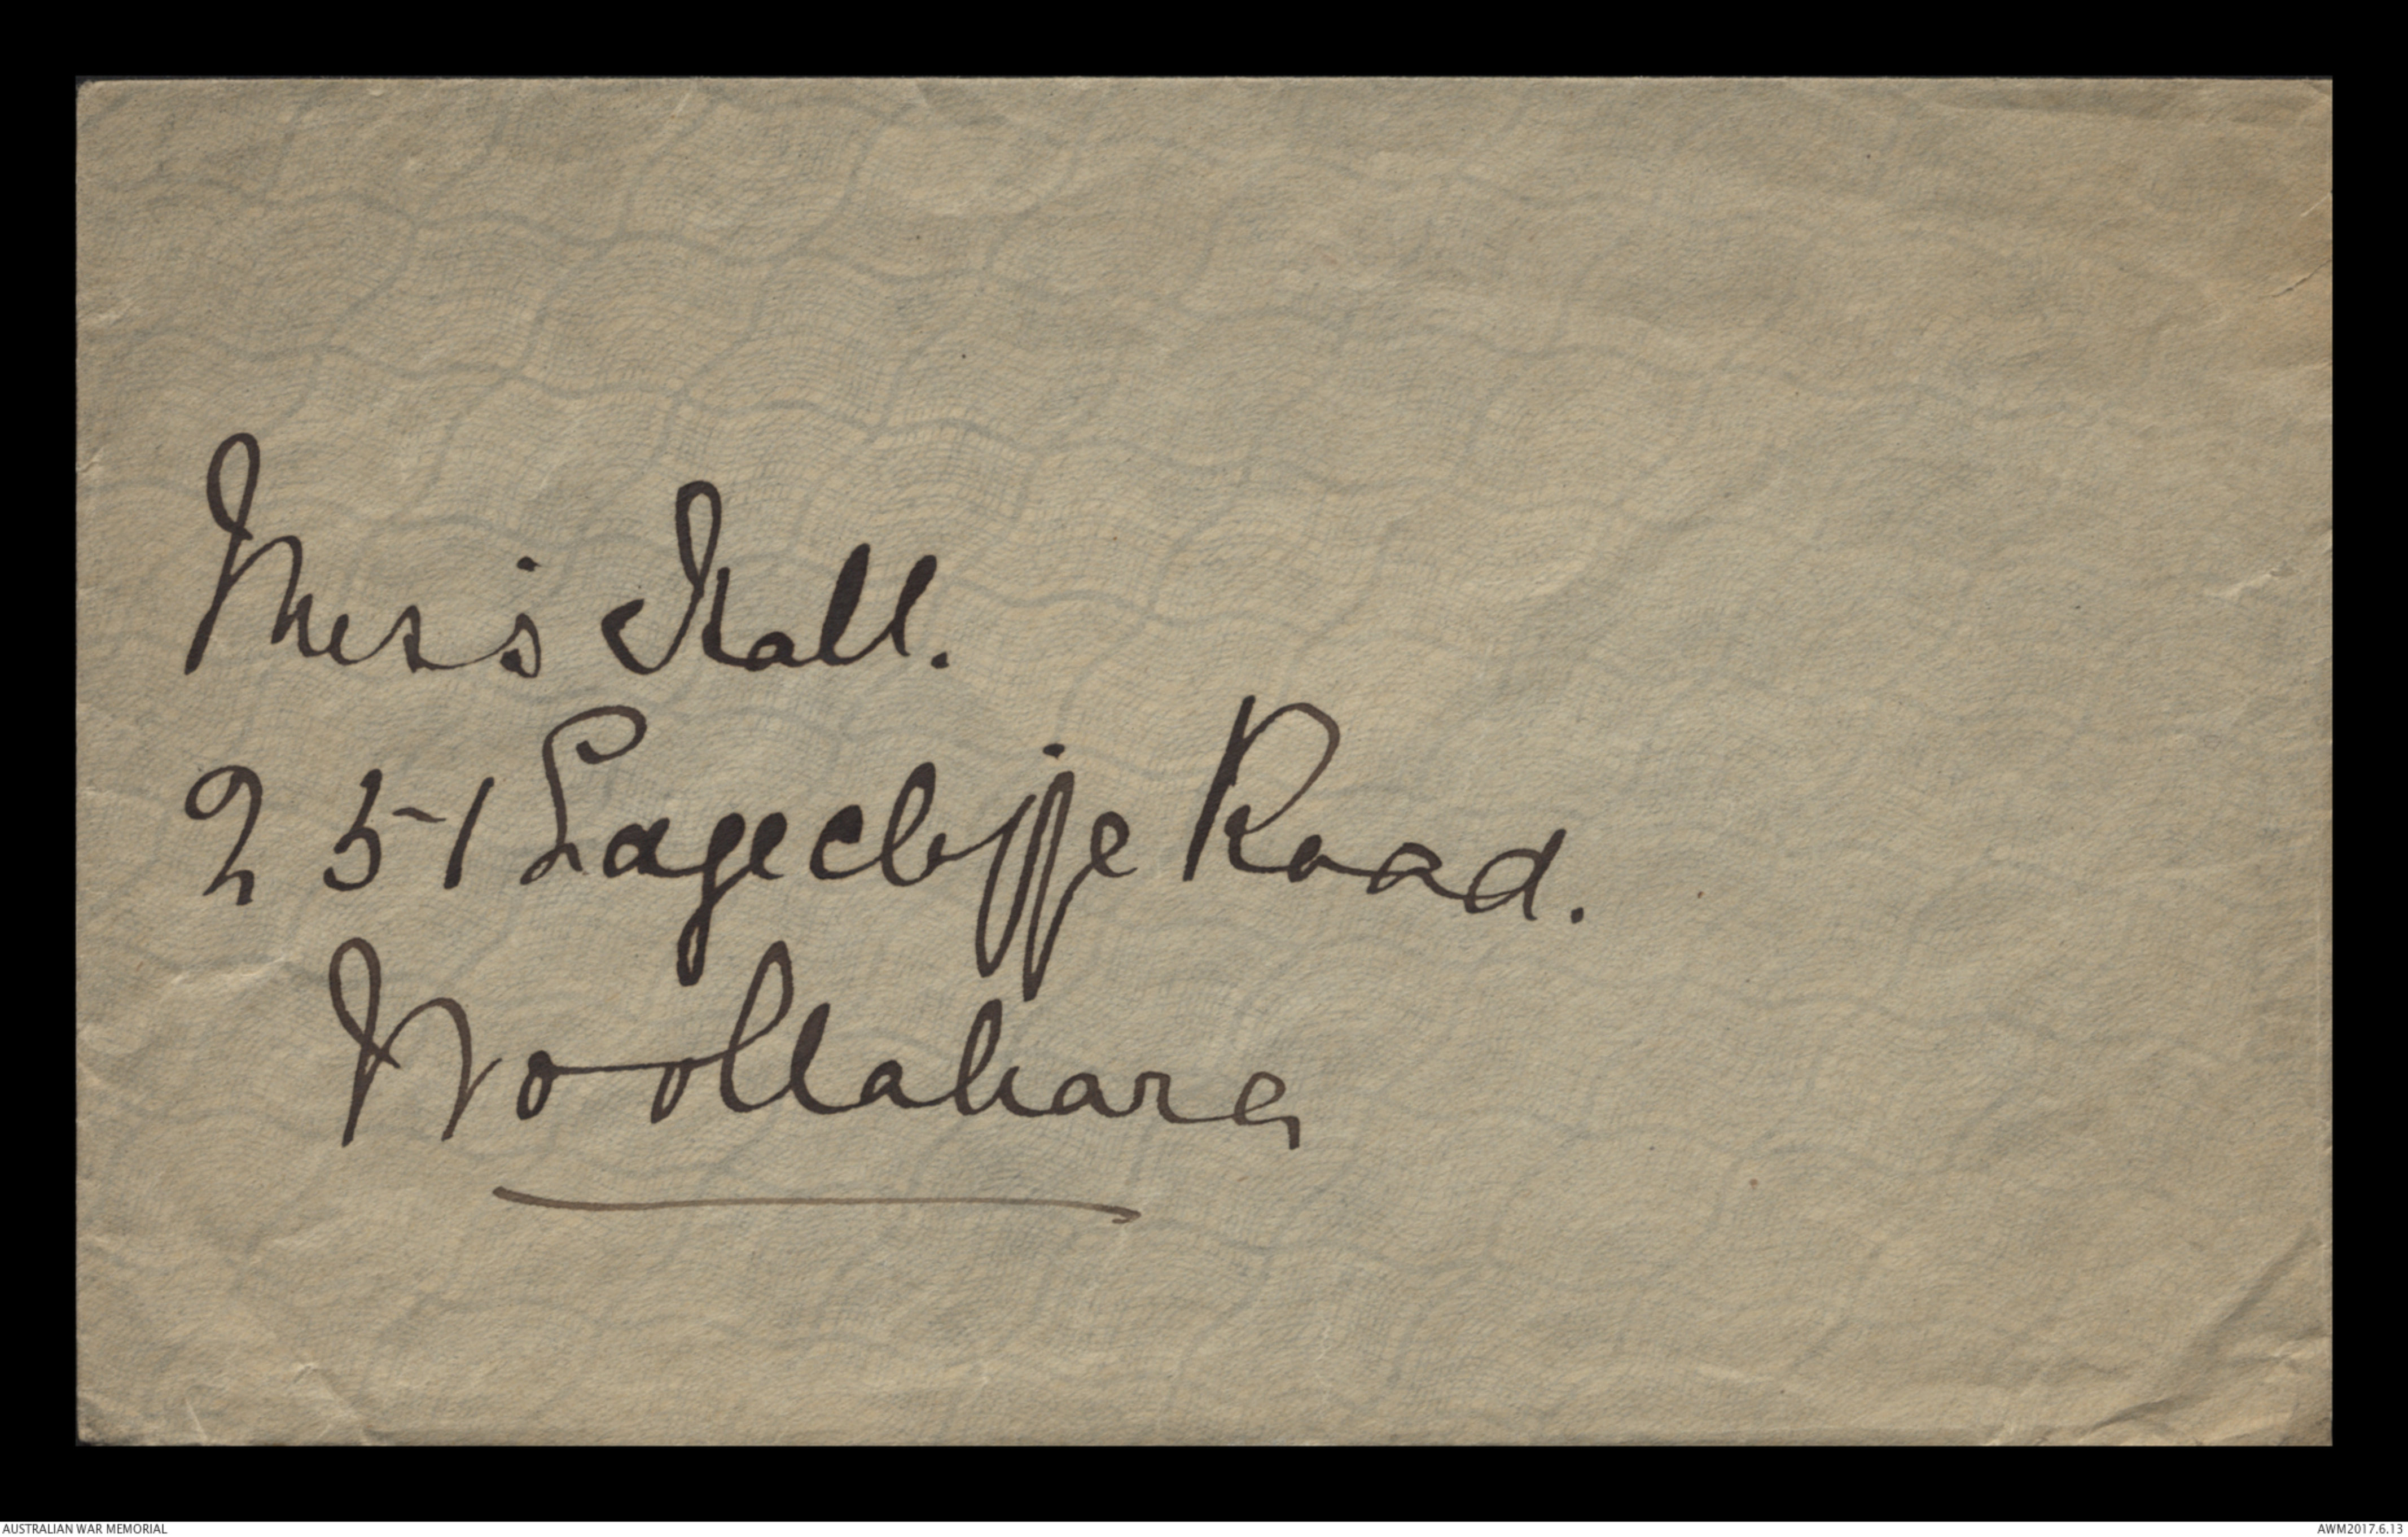 Miss Hall.
251 Edgecliffe Road.
Woollahara
AUSTRALIAN WAR MEMORIAL
AWM2017.6.13